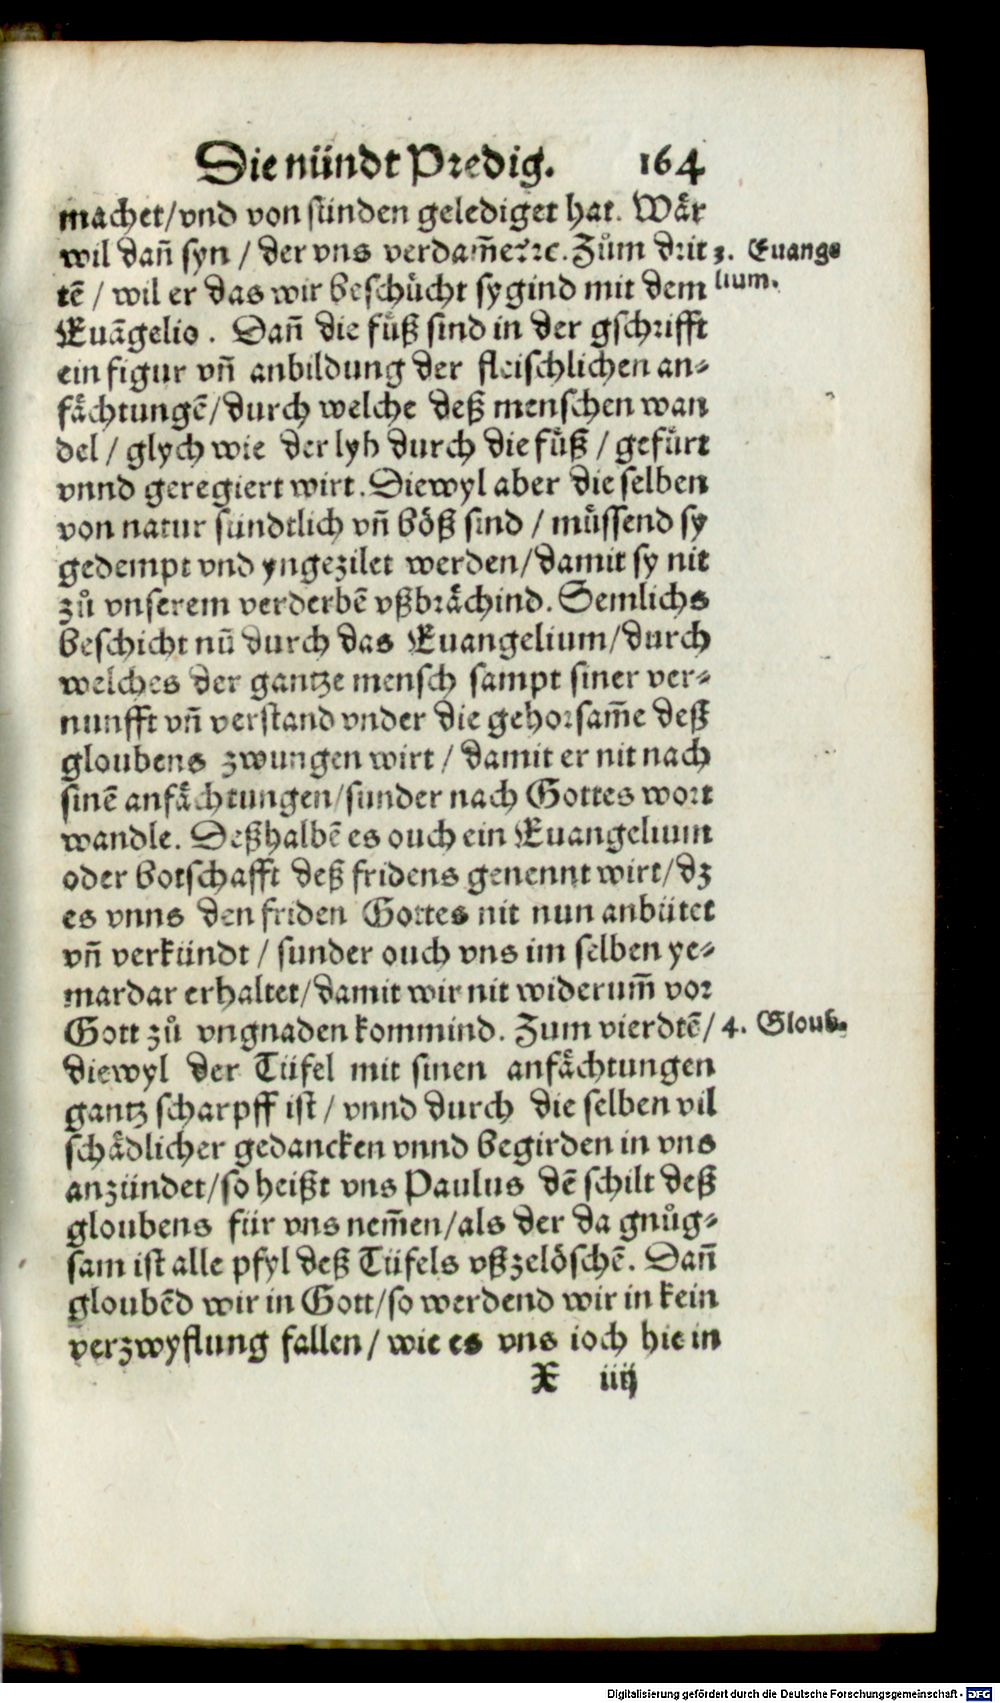 Die nündt Predig. 164
machet/vnd von sünden gelediget hat. Wår
wil dañ syn / der vns verdam̃e ꝛc. Zům drit
3. Euange
tẽ / wil er das wir beschůcht sygind mit dem
lium.
Euãgelio. Dañ die fůß sind in der gschrifft
ein figur vñ anbildung der fleischlichen an⸗
fåchtungẽ/durch welche deß menschen wan
del / glych wie der lyb durch die fůß / gefůrt
vnnd geregiert wirt. Diewyl aber die selben
von natur sündtlich vñ böß sind / můssend sy
gedempt vnd yngezilet werden/damit sy nit
zů vnserem verderbẽ vßbråchind. Semlichs
beschicht nũ durch das Euangelium/durch
welches der gantze mensch sampt siner ver⸗
nunfft vñ verstand vnder die gehorsam̃e deß
gloubens zwungen wirt / damit er nit nach
sinẽ anfåchtungen/sunder nach Gottes wort
wandle. Deßhalbẽ es ouch ein Euangelium
oder botschafft deß fridens genennt wirt/dz
es vnns den friden Gottes nit nun anbütet
vñ verkündt / sunder ouch vns im selben ye⸗
mardar erhaltet/damit wir nit widerum̃ vor
Gott zů vngnaden kommind. Zum vierdtẽ/
4. Gloub.
diewyl der Tüfel mit sinen anfåchtungen
gantz scharpff ist / vnnd durch die selben vil
schådlicher gedancken vnnd begirden in vns
anzündet/so heißt vns Paulus dẽ schilt deß
gloubens für vns nem̃en/als der da gnůg⸗
sam ist alle pfyl deß Tüfels vßzelöschẽ. Dañ
gloubẽd wir in Gott/so werdend wir in kein
verzwyflung fallen / wie es vns ioch hie in
X iiij
Digitalisierung gefördert durch die Deutsche Forschungsgemeinschaft - DFG